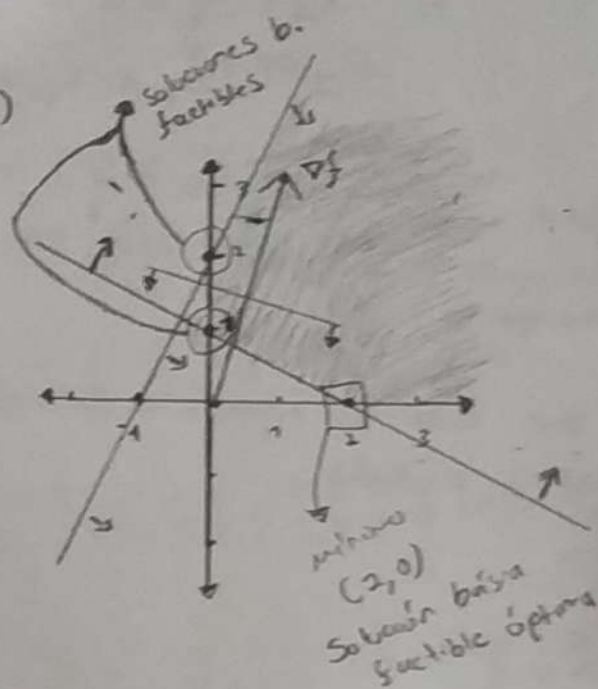 )
soluciones b.
factibles
3
∇f
2
1
-1
1
2
3
mínimo
(2,0)
Solución básica
factible óptima